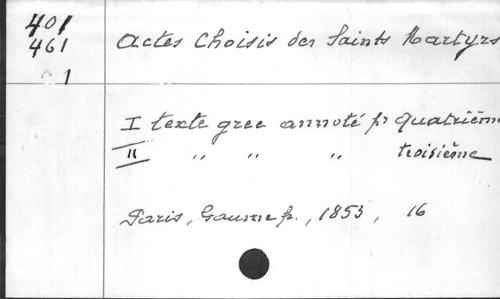 401
461
1
Actes Choisis des Saints Martyrs
I texte grec annoté pr quatrième
II " " " troisième
Paris, Gaume fr., 1853, 16